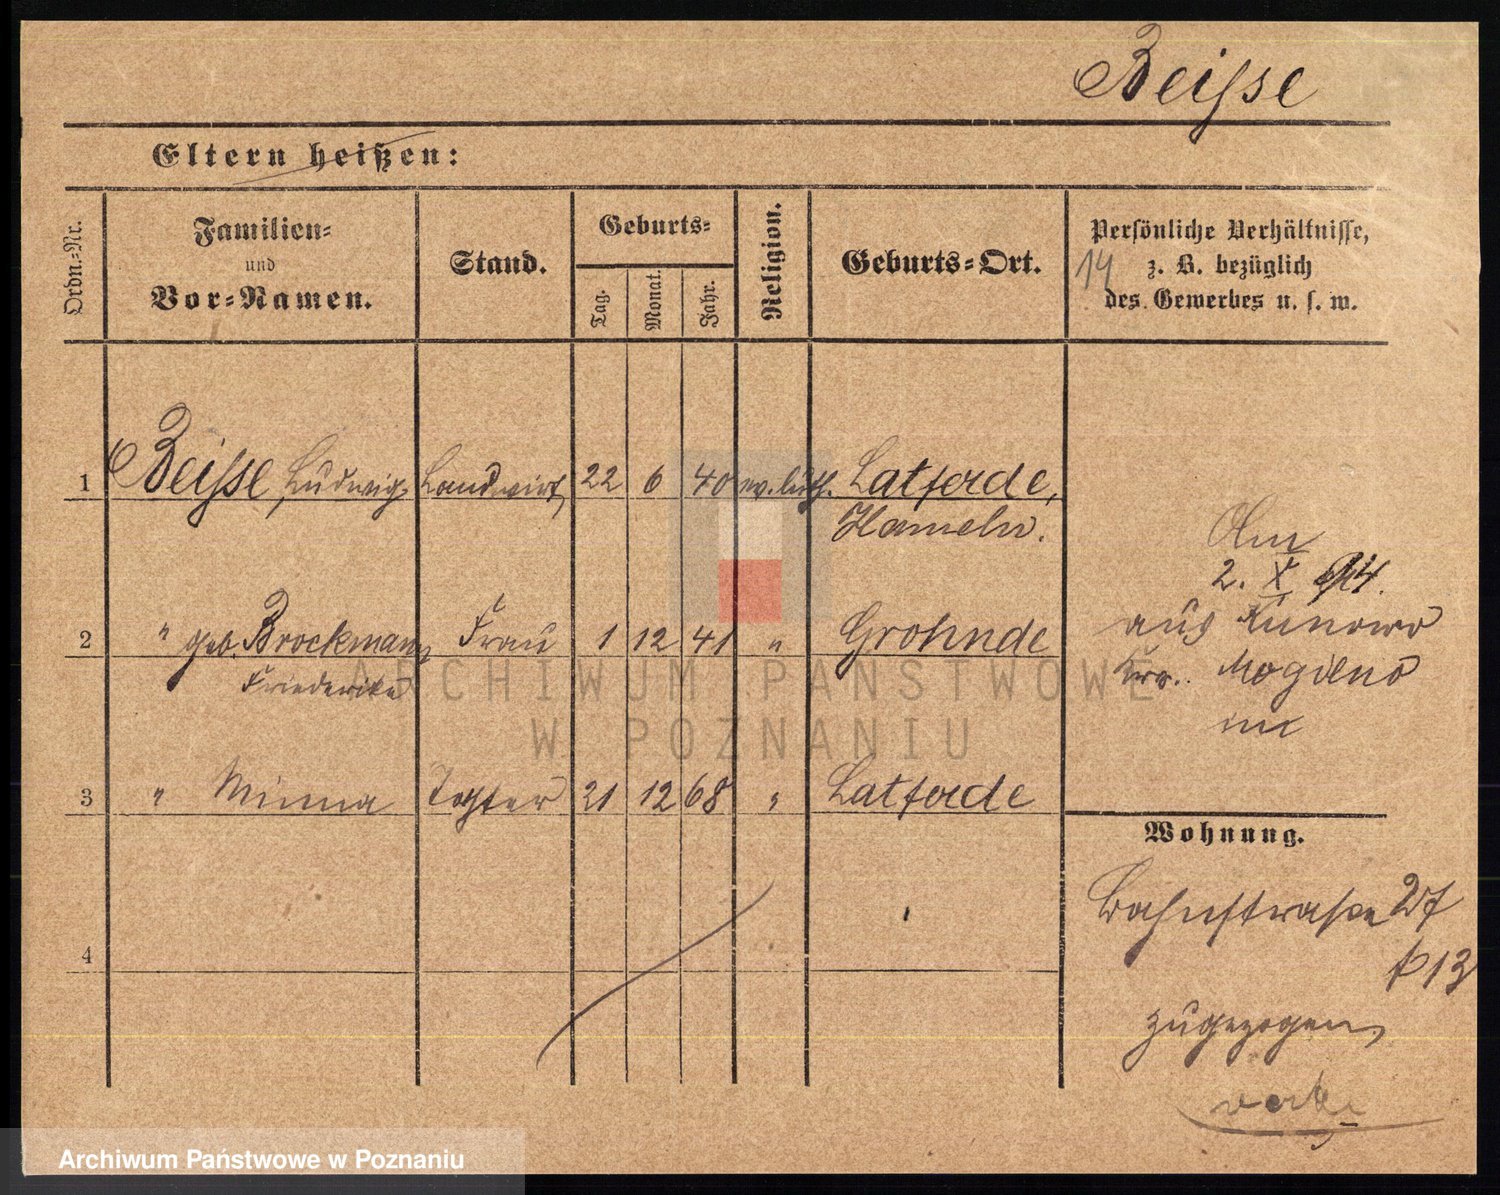 Beisse
Eltern heißen:
Ordn.-Nr.
Familien-
und
Vor-Namen.
Stand.
Geburts-
Tag.
Monat.
Jahr.
Religion.
Geburts-Ort.
Persönliche Verhältnisse,
14 z. B. bezüglich
des Gewerbes u. s. w.
1 Beisse, Ludwig, Landwirt, 22 6 40 ev. luth. Latferde,
Hameln.
Am
2. X. 94.
2 " geb. Brockmann Frau 1 12 41 " Grohnde
Friederike
aus Kunowo
Krs. Mogilno
3 " Minna Tochter 21 12 68 " Latferde
Wohnung.
Bahnstraße 27
4
p 13
zugezogen,
ARCHIWUM PAŃSTWOWE
W POZNANIU
Archiwum Państwowe w Poznaniu